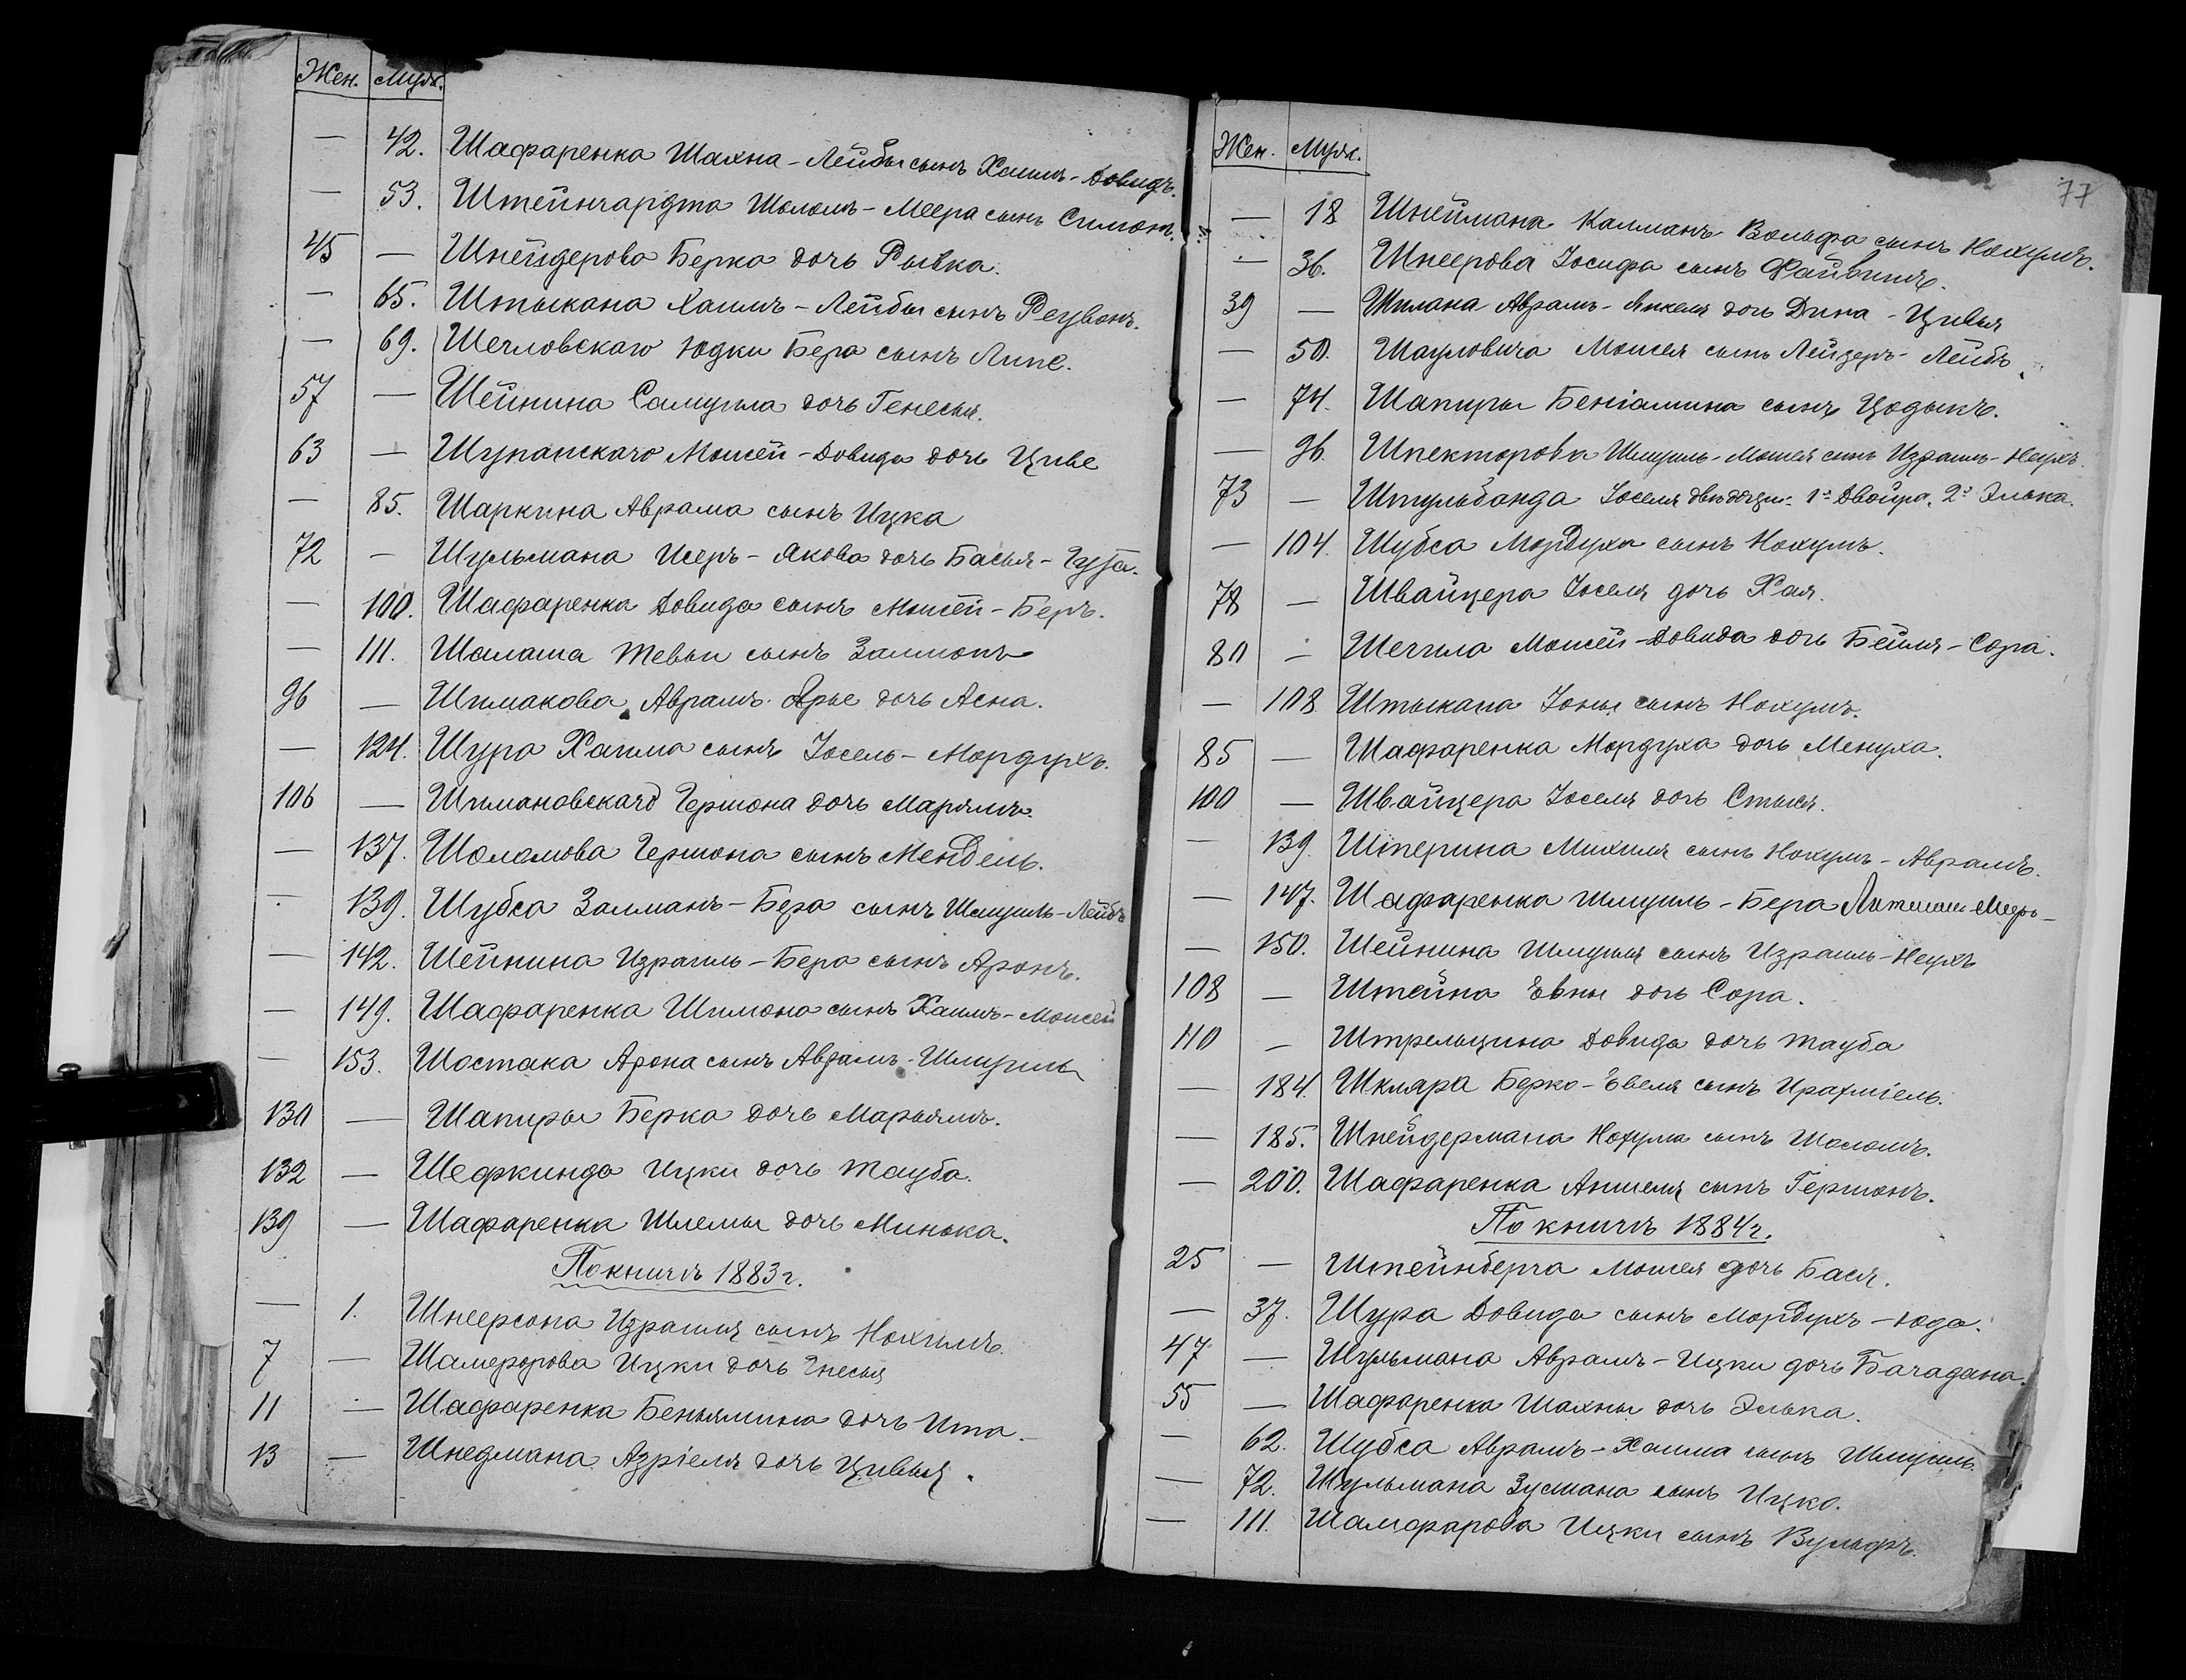 Жен. Муж.
— 42. Шафаренка Шахна-Лейбы сынъ Хаимъ-Довидъ.
— 53. Штейнгардта Шоломъ-Меера сынъ Симонъ.
45 — Шнейдерова Берка дочь Рывка.
— 65. Штыкана Хаимъ-Лейбы сынъ Реувонъ.
— 69. Шегловскаго Юдки Бера сынъ Липе.
57 — Шейнина Самуила дочь Генесья.
63 — Шупанскаго Моисей-Довида дочь Циве
— 85. Шаркина Аврама сынъ Ицка
72 — Шульмана Исеръ-Якова дочь Басья-Гута.
— 100. Шафаренка Довида сынъ Моисей-Беръ.
— 111. Шалаша Тевьи сынъ Залмонъ
96 — Шимакова Аврамъ-Арье дочь Асна.
— 124. Шура Хаима сынъ Іосель-Мордухъ.
106 — Шимановскаго Гершона дочь Марьямъ.
— 137. Шоломова Гершона сынъ Мендель.
— 139. Шубса Залманъ-Бера сынъ Шмуиль-Лейбъ
— 142. Шейнина Израиль-Бера сынъ Аронъ.
— 149. Шафаренка Шимона сынъ Хаимъ-Моисей
— 153. Шостака Арона сынъ Аврамъ-Шмуиль
130 — Шапиры Берка дочь Марьямъ.
132 — Шефкинда Ицки дочь Тауба.
139 — Шафаренка Шлемы дочь Минька.
По книгѣ 1883 г.
— 1. Шнеерсона Израиля сынъ Нохимъ.
7 — Шамфорова Ицки дочь Гнесья
11 — Шафаренка Беньямина дочь Ита.
13 — Шнедмана Азріеля дочь Цивья.
77
Жен. Муж.
— 18 Шнеймана Калманъ Вольфа сынъ Нохумъ.
— 36. Шнеерова Іосифа сынъ Файвишъ.
39 — Шплана Аврамъ-Янкеля дочь Дина-Цивья
— 50. Шауловича Моисея сынъ Лейзеръ-Лейбъ.
— 74. Шапиры Беніамина сынъ Цодыкъ.
— 96. Шпекторова Шмуиль-Моисея сынъ Израиль-Неухъ.
73 — Штульбанда Іоселя двѣ дочери: 1я Двойра, 2я Элька.
— 104. Шубса Мордуха сынъ Нохумъ.
78 — Швайцера Іоселя дочь Хая.
80 — Шегила Моисей-Довида дочь Бейля-Сора.
— 108 Штыкана Іоны сынъ Нохумъ.
85 — Шафаренка Мордуха дочь Менуха.
100 — Швайцера Іоселя дочь Стыся.
— 139. Штерина Михиля сынъ Нохумъ-Аврамъ.
— 147. Шафаренка Шмуиль-Бера Меръ-
— 150. Шейнина Шмуила сынъ Израиль-Неухъ
108 — Штейна Евны дочь Сора.
110 — Штрельцина Довида дочь Тауба
— 184. Шкляра Берко-Евеля сынъ Ирахміель.
— 185. Шнейдермана Нохума сынъ Шоломъ.
— 200. Шафаренка Аншеля сынъ Гершонъ.
По книгѣ 1884 г.
25 — Штейнберга Моисея дочь Бася.
— 37. Шура Довида сынъ Мордухъ-Юда.
47 — Шульмана Аврамъ-Ицки дочь Багадана.
55 — Шафаренка Шахны дочь Элька.
— 62. Шубса Аврамъ-Хаима сынъ Шмуиль.
— 72. Шульмана Зусмана сынъ Ицко.
— 111. Шамфарова Ицки сынъ Вульфъ.